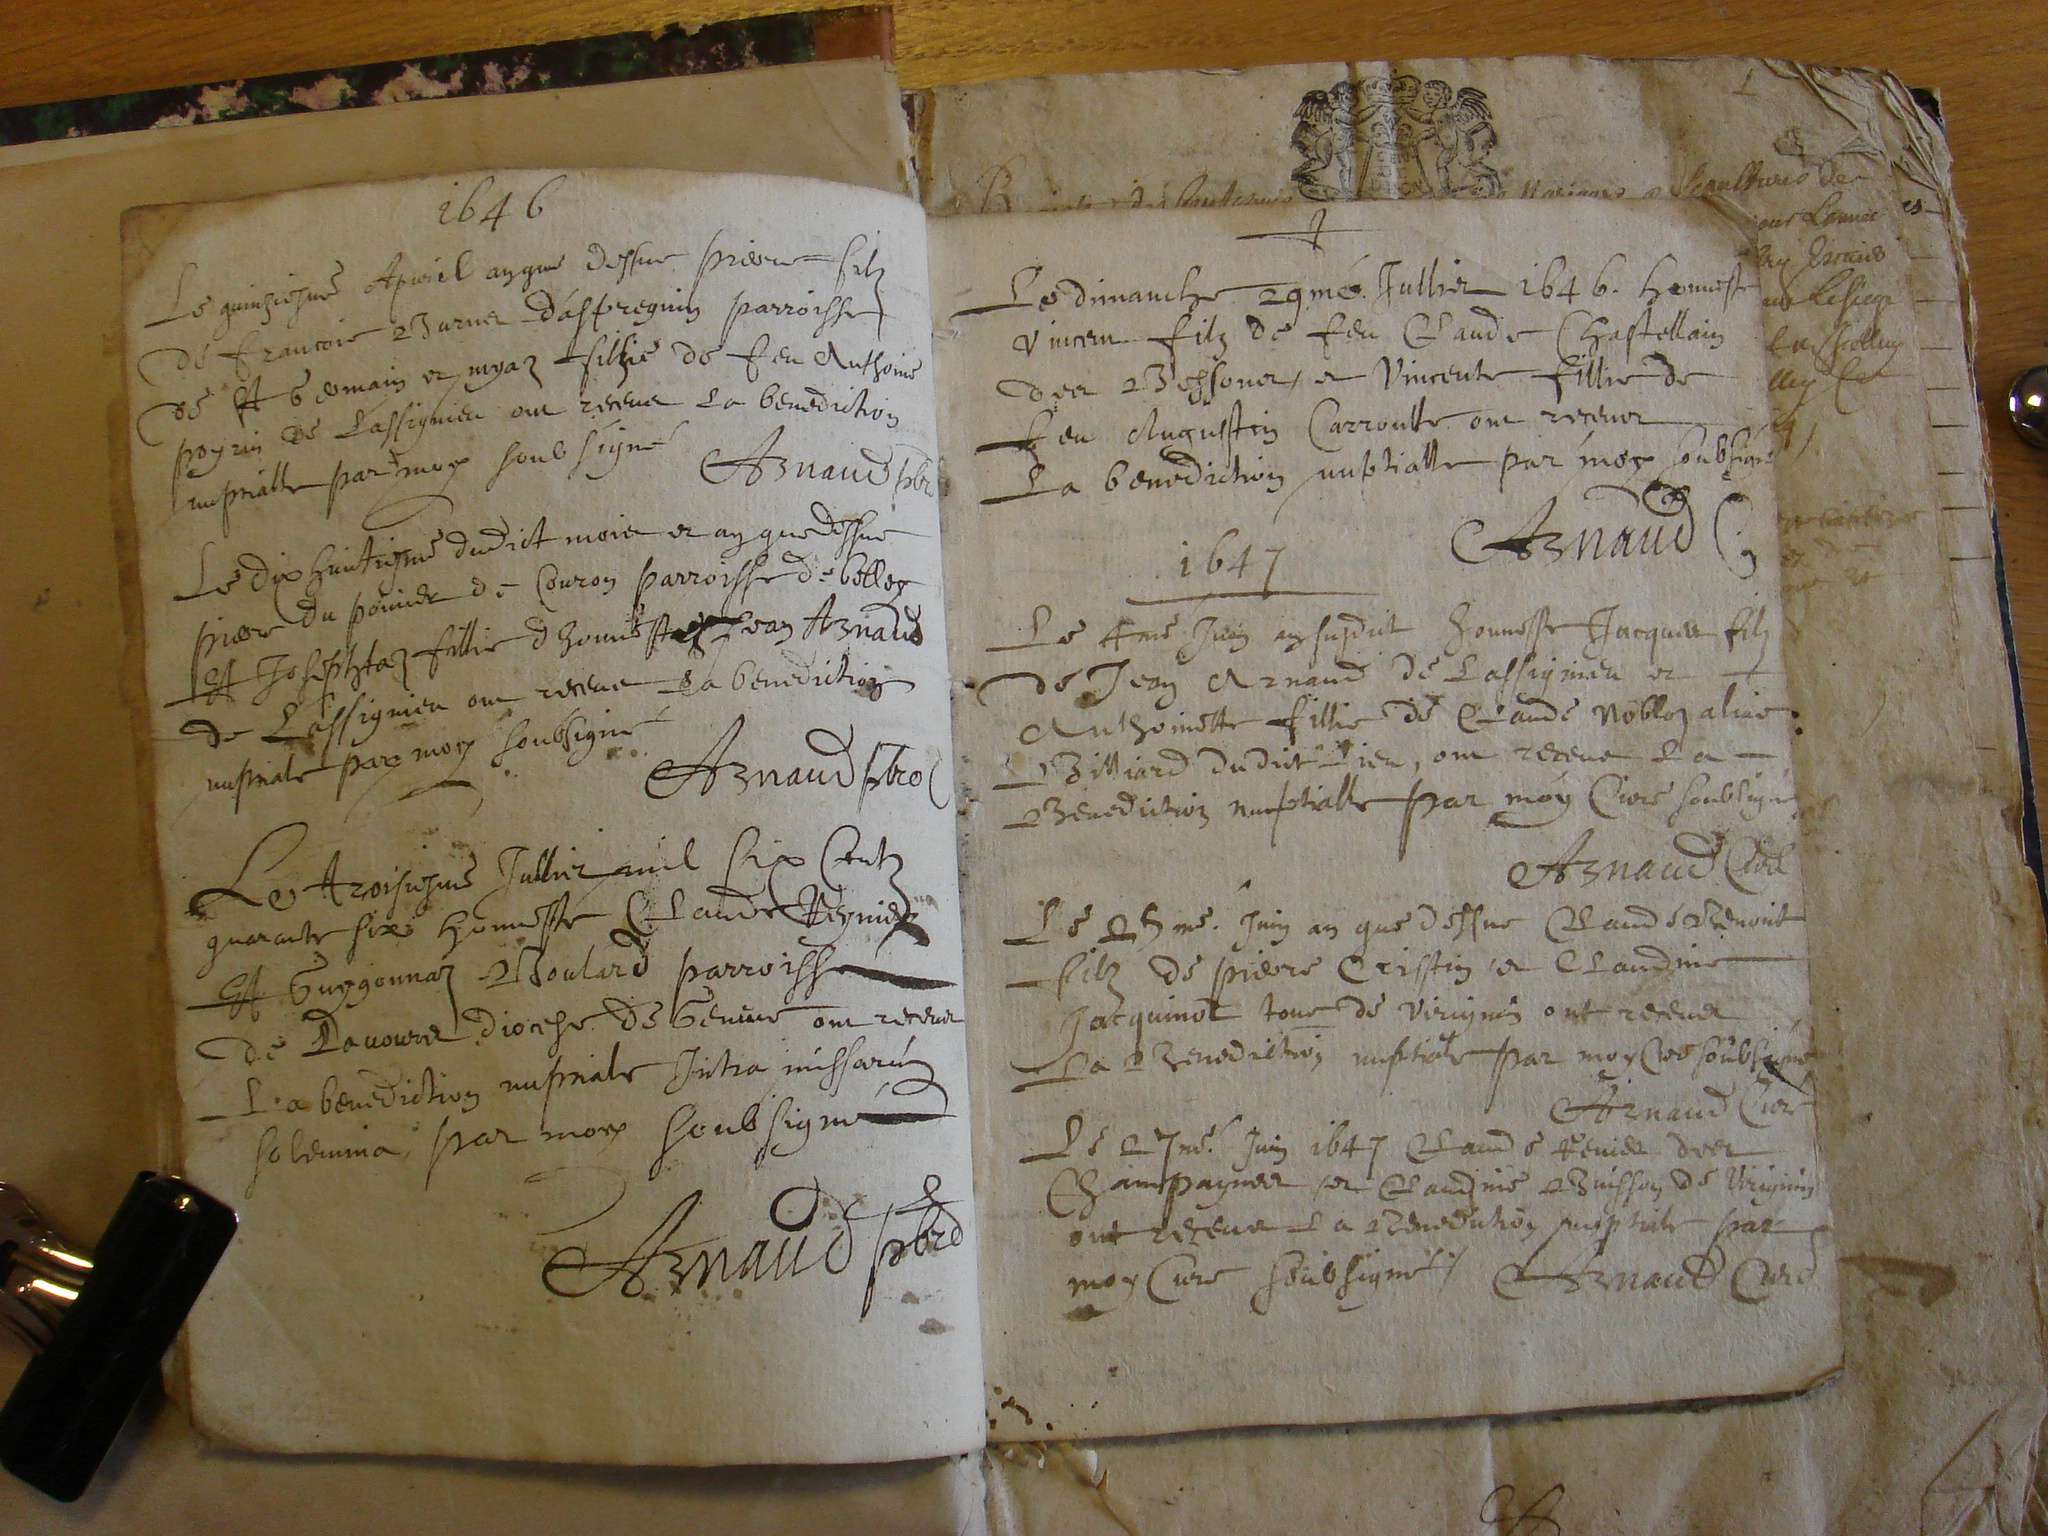 1646
Le quinziesme Apvril an que dessus pierre filz
de francois Burnet d'aspregnin parroisse
de St Germain et myaz fillie de feu Anthoine
peyrin de Lassignieu ont receus La benediction
nuptialle par moy soubsigné
Arnaud pbre
Le dix huitiesme dudict mois et an que dessus
pierre du pomier de Couron parroisse de belley
Et Josephtaz fillie d'honneste Jean Arnaud
de Lassignieu ont receus La benediction
nuptiale par moy soubsigné
Arnaud pbre
Le troisiesme Julliet mil six Centz
quarante six honneste Claude Reynier
Et Guygonnaz Boulard parroisse
de Lavours diocese de Geneve ont receus
La benediction nuptiale Intra missarum
solemnia par moy soubsigné
Arnaud pbre
Le dimanche 29me Jullier 1646. honneste
Vincent filz de feu Claude Chastellain
des Bessones, et Vincente fillie de
feu Augustin Carroutte ont receus
La benediction nuptialle par moy soubsigné
Arnaud C
1647
Le 4me Juin an susdict honneste Jacques filz
de Jean Arnaud de Lassignieu et
Anthoinette fillie de Claude Nobloz alias
Billiard dudict Lieu, ont receus La
Benediction nuptialle par moy Cure soubsigné
Arnaud Curé
Le 25me. Juin an que dessus Claude Benoit
filz de pierre Cristin et Claudine
Jacquinot tous de virignin ont receus
La Benediction nuptiale par moy Cure soubsigné
Arnaud Curé
Le 27me. Juin 1647 Claude Renier des
Champagnes et Claudine Buisson de Virignin
ont receus La Benediction nuptiale par
moy Cure soubsigné
Arnaud Curé